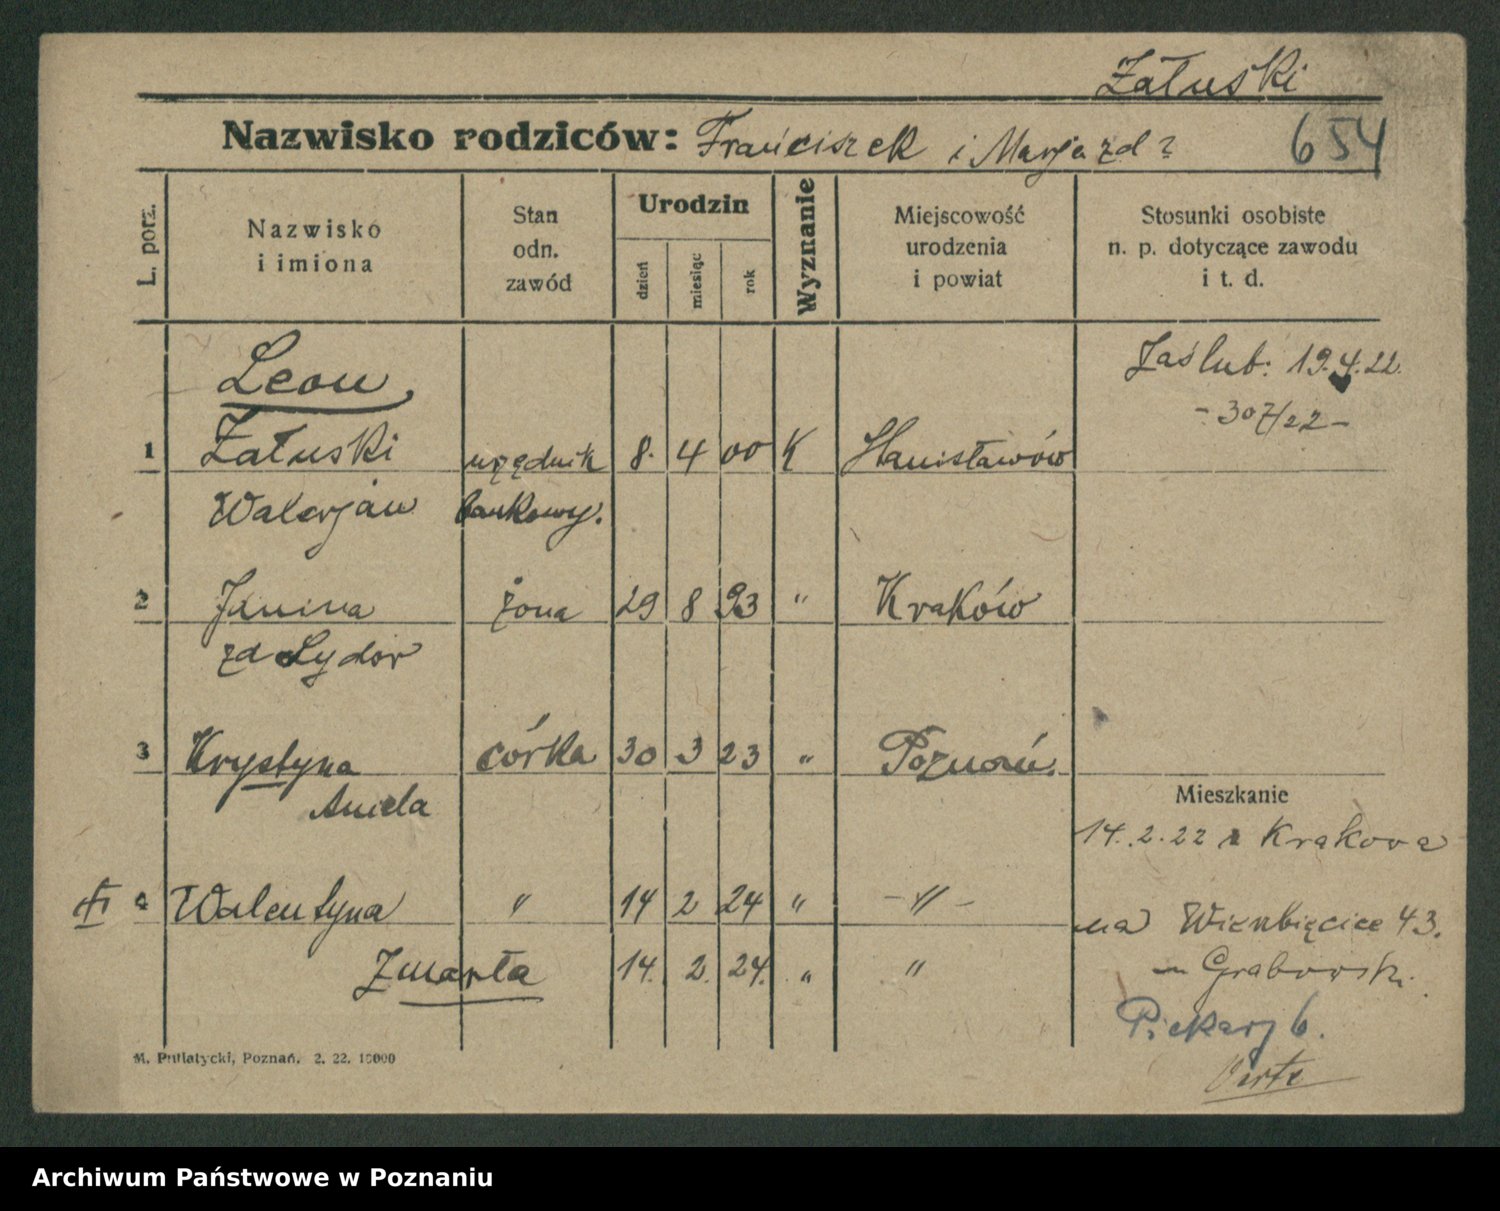 Załuski
Nazwisko rodziców: Franciszek i Marja zd ?
654
L. porz.
Nazwisko
i imiona
Stan
odn.
zawód
Urodzin
dzień
miesiąc
rok
Wyznanie
Miejscowość
urodzenia
i powiat
Stosunki osobiste
n. p. dotyczące zawodu
i t. d.
Leon,
Zaślub: 19.4.22.
- 307/22 -
1 Załuski urzędnik 8. 4 00 K Stanisławów
Walerjan bankowy.
2 Janina żona 29 8 93 " Kraków
zd Lydor
3 Krystyna córka 30 3 23 " Poznań.
Aniela
Mieszkanie
14.2.22 z Krakowa
4 Walentyna " 14 2 24 " - " -
na Wierzbięcice 43.
Zmarła 14. 2. 24. " "
Grabowsk.
Piekary 6.
Verte
M. Putiatycki, Poznań. 2. 22. 15000
Archiwum Państwowe w Poznaniu